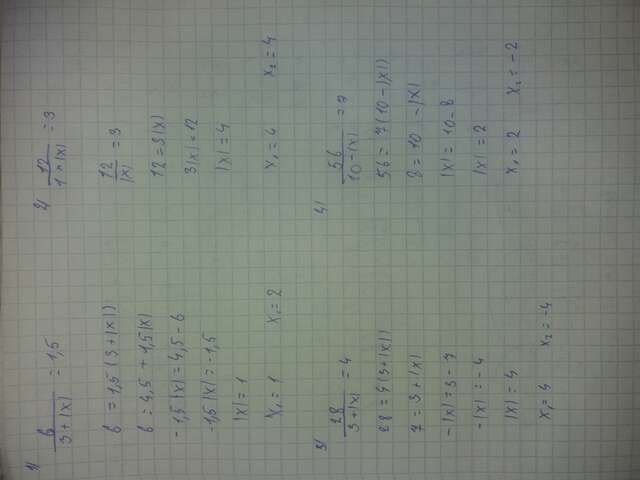 1) 6 / (3 + |x|) = 1,5
6 = 1,5 (3 + |x|)
6 = 4,5 + 1,5 |x|
-1,5 |x| = 4,5 - 6
-1,5 |x| = -1,5
|x| = 1
x₁ = 1 x₂ = 2
2) 12 / (1 * |x|) = 3
12 / |x| = 3
12 = 3 |x|
3 |x| = 12
|x| = 4
x₁ = 4 x₂ = 4
3) 28 / (3 + |x|) = 4
28 = 4 (3 + |x|)
7 = 3 + |x|
-|x| = 3 - 7
-|x| = -4
|x| = 4
x₁ = 4 x₂ = -4
4) 56 / (10 - |x|) = 7
56 = 7 (10 - |x|)
8 = 10 - |x|
|x| = 10 - 8
|x| = 2
x₁ = 2 x₂ = -2